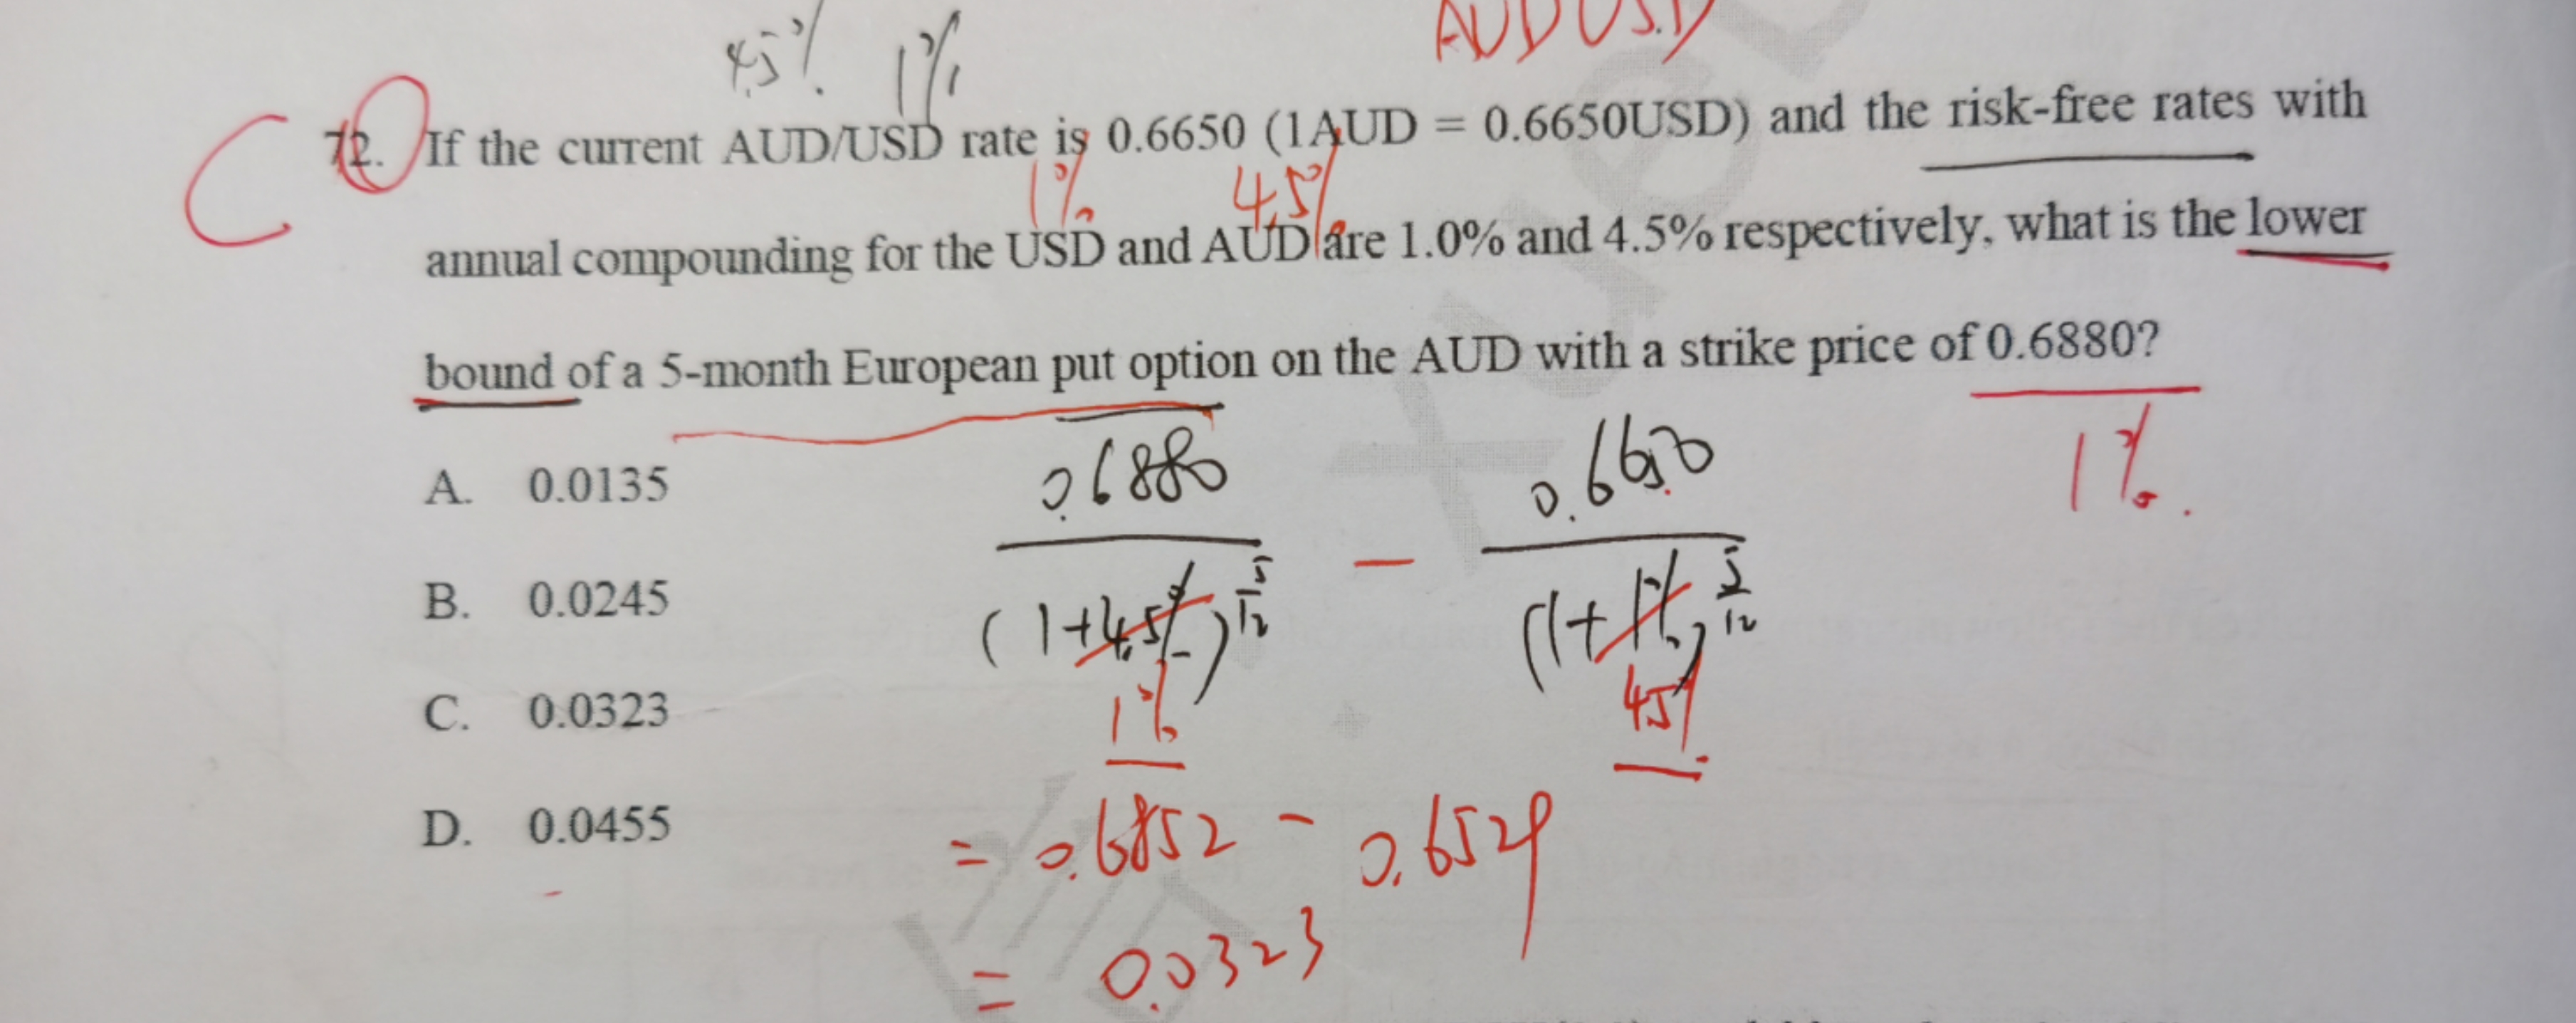 AUD USD
4.5% 1%
C 72. If the current AUD/USD rate is 0.6650 (1AUD = 0.6650USD) and the risk-free rates with
1% 4.5%
annual compounding for the USD and AUD are 1.0% and 4.5% respectively, what is the lower
bound of a 5-month European put option on the AUD with a strike price of 0.6880?
1%
A. 0.0135
B. 0.0245
C. 0.0323
D. 0.0455
0.6880 - 0.6650
(1+4.5%)^5/12 (1+1%)^5/12
1% 4.5%
= 0.6852 - 0.6529
= 0.0323